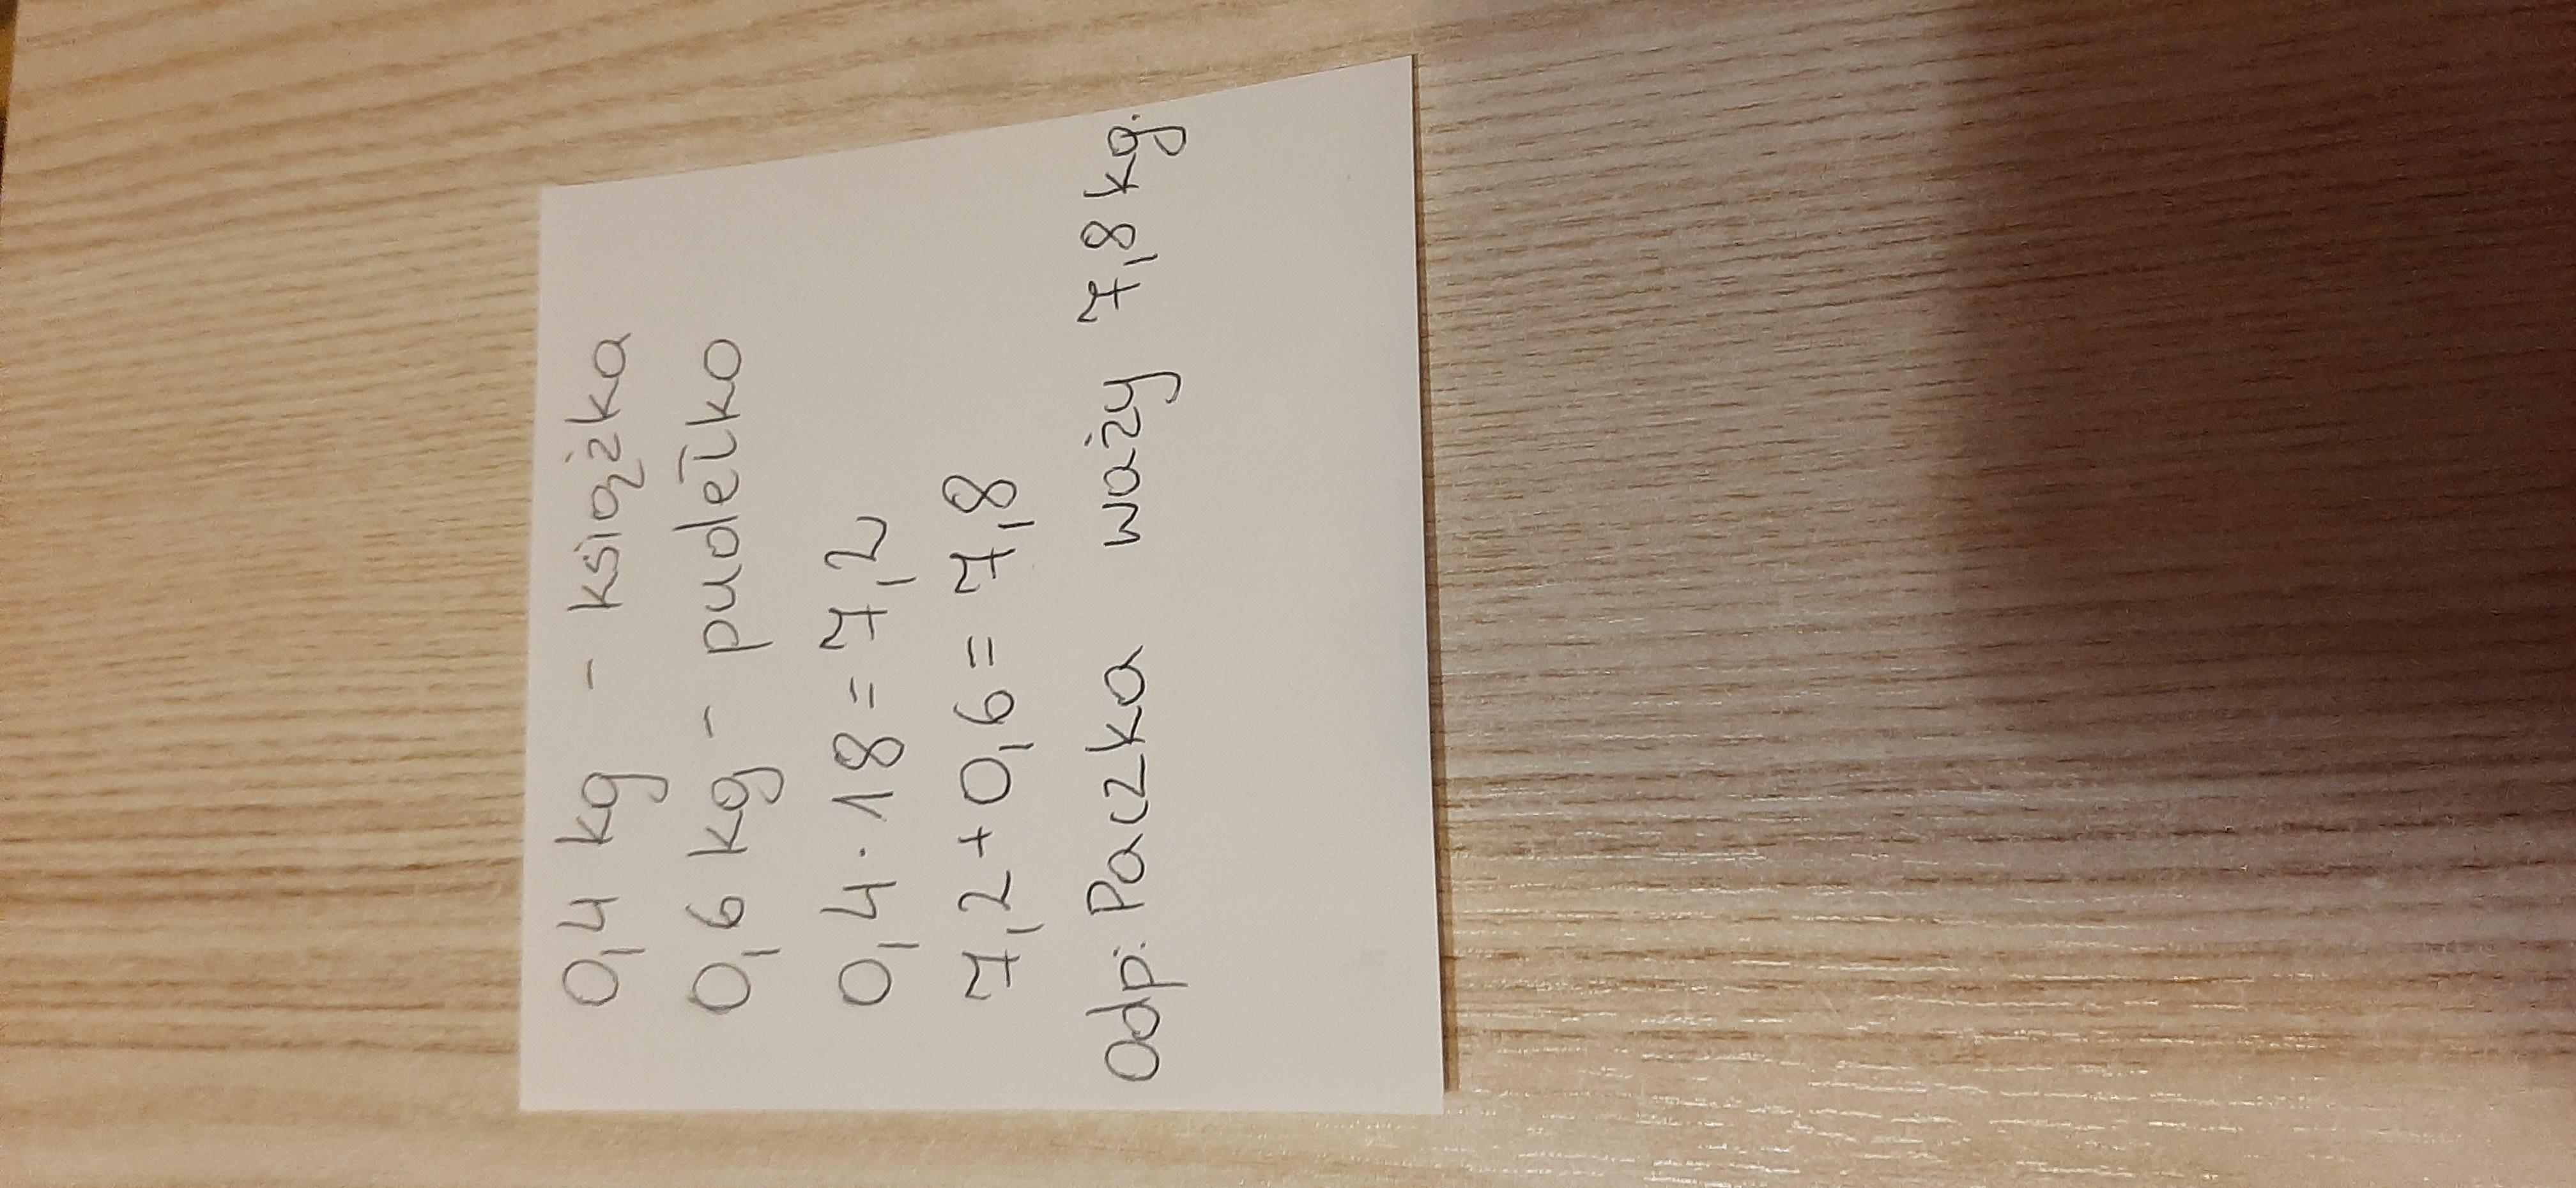 0,4 kg - książka
0,6 kg - pudełko
0,4 · 18 = 7,2
7,2 + 0,6 = 7,8
Odp: Paczka waży 7,8 kg.